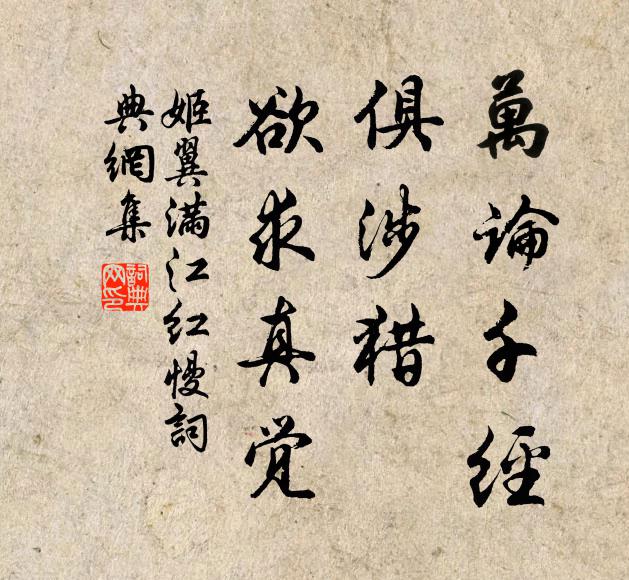 萬論千經
俱涉猎
欲求真觉
姬翼满江红慢詞
典網集
詞典網印